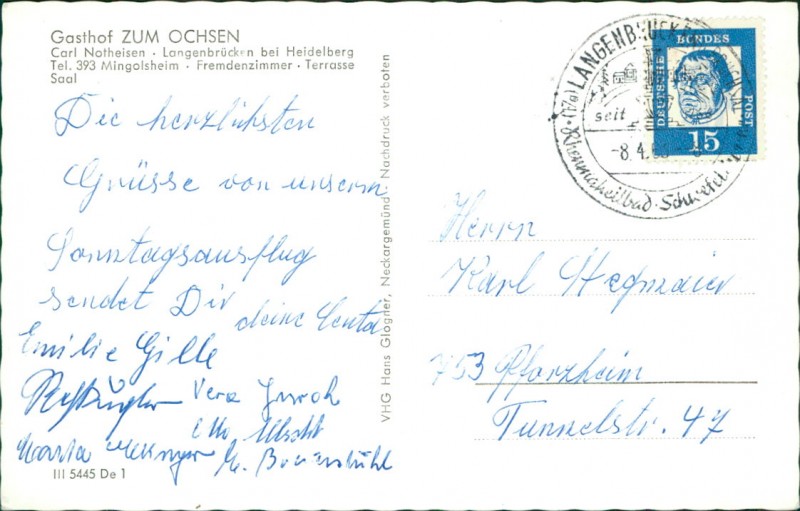 Gasthof ZUM OCHSEN
Carl Notheisen · Langenbrücken bei Heidelberg
Tel. 393 Mingolsheim · Fremdenzimmer · Terrasse
Saal
Die herzlichsten
Grüsse von unserm
Sonntagsausflug
sendet Dir deine Centa
Emilie Gille
Vera
Marta
III 5445 De 1
VHG Hans Glogner, Neckargemünd Nachdruck verboten
(17a) LANGENBRÜCKEN
seit
-8.4.
Rheumaheilbad · Schwefel
DEUTSCHE
BUNDES
POST
15
Herrn
Karl Stegmaier
753 Pforzheim
Tunnelstr. 47